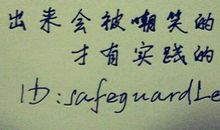 出来会被嘲笑的
才有实践的
ID:safeguardle